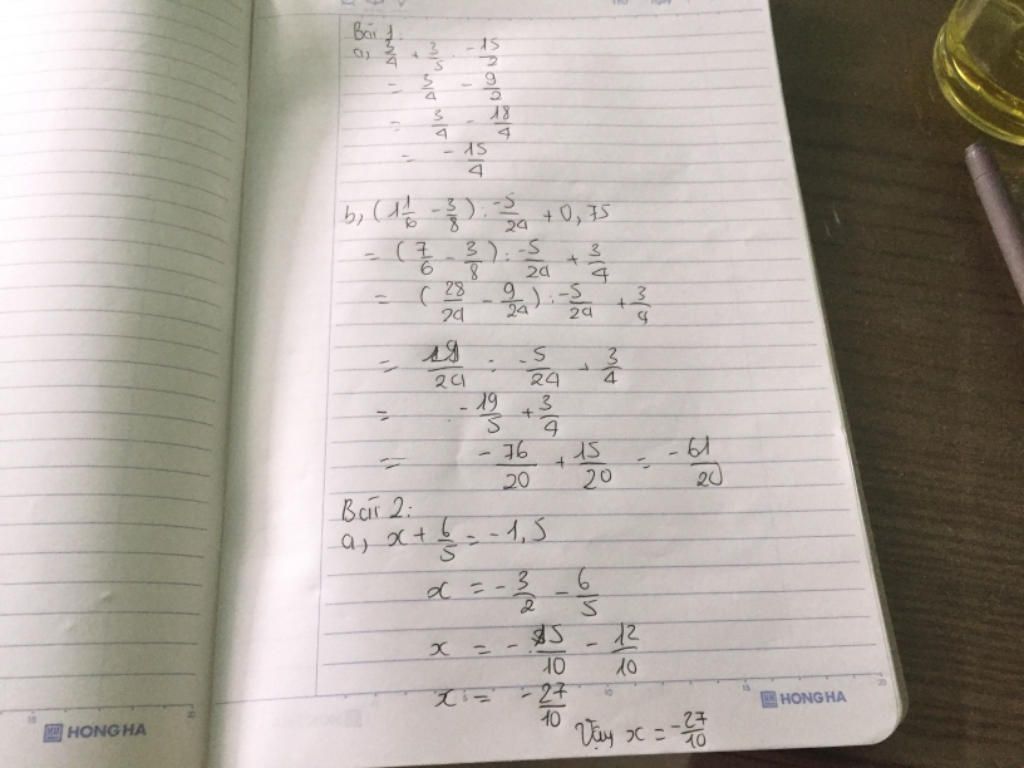 Bài 1:
a, 3/4 + 3/5 . -15/2
= 3/4 - 9/2
= 3/4 - 18/4
= -15/4
b, (1 1/6 - 3/8) : -5/24 + 0,75
= (7/6 - 3/8) : -5/24 + 3/4
= (28/24 - 9/24) : -5/24 + 3/4
= 19/24 : -5/24 + 3/4
= -19/5 + 3/4
= -76/20 + 15/20 = -61/20
Bài 2:
a, x + 6/5 = -1,5
x = -3/2 - 6/5
x = -15/10 - 12/10
x = -27/10
Vậy x = -27/10
HONG HA
HONG HA